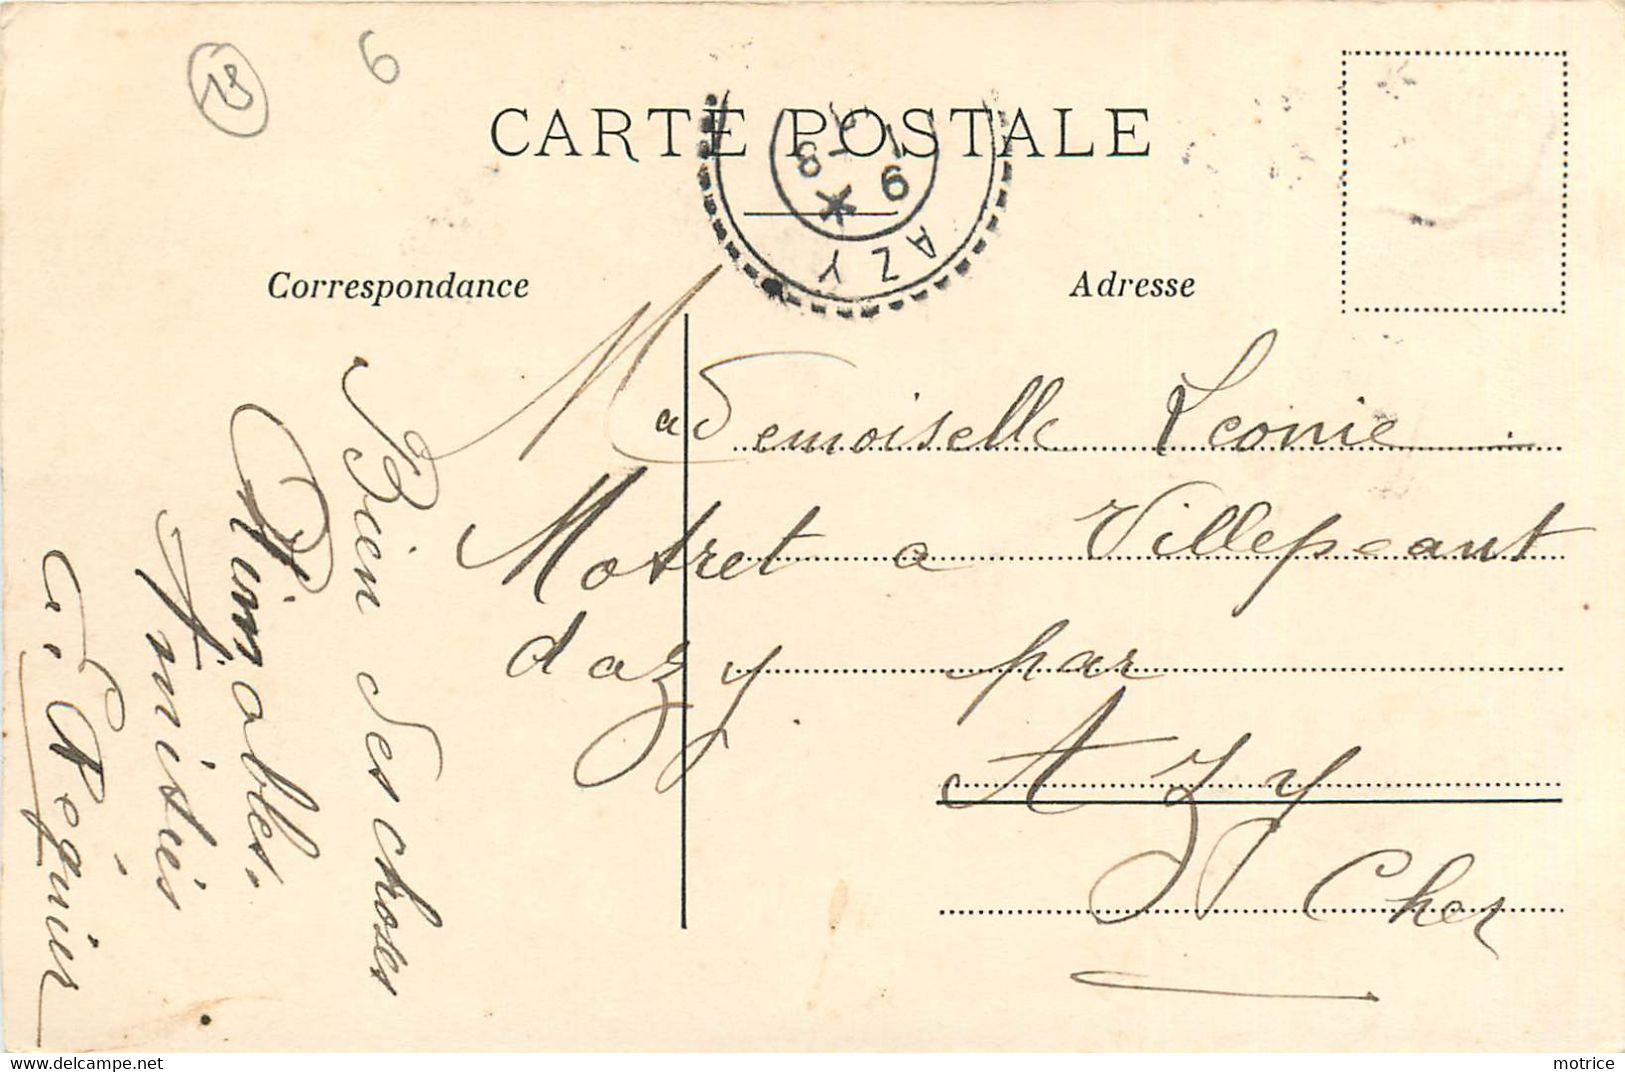 CARTE POSTALE
AZY
Correspondance
Adresse
Bien des choses
Aimables.
Amitiés
Régnier
Mademoiselle Leonie
Motret a Villepeant
dazy par
AZY
Cher
6
motrice